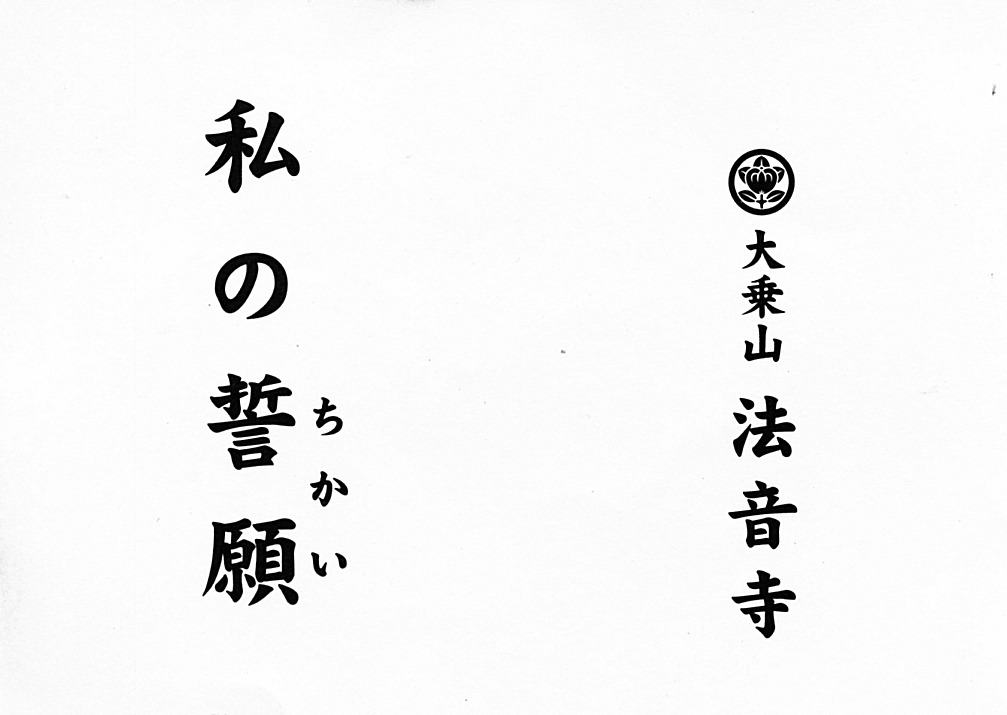 大乗山 法音寺
私の誓願
ちかい